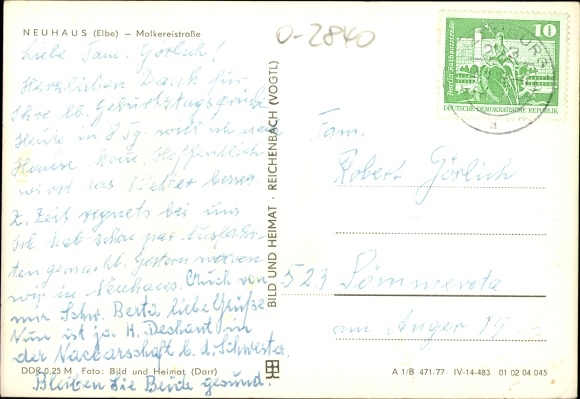 NEUHAUS (Elbe) — Molkereistraße
0-2840
Liebe Fam. Görlich!
Herzlichen Dank für
Ihre lb. Geburtstagsgrüße
Heute in 8 Tg. will ich nach
Hause kom. Hoffentlich
wird das Wetter besser
Z. Zeit regnets bei uns
Ich hab schon paar Ausfahr-
ten gemacht. Gestern waren
wir in Neuhaus. Auch von
mir Schw. Berta liebe Grüße
Nun ist ja H. Dechant in
der Nachbarschaft b. d. Schwester.
Bleiben Sie Beide gesund.
DDR 0,25 M Foto: Bild und Heimat (Darr)
BILD UND HEIMAT · REICHENBACH (VOGTL)
10
Berlin, Rathausstraße
DEUTSCHE DEMOKRATISCHE REPUBLIK
a
Fam.
Robert Görlich
523 Sömmerda
am Anger 19
A 1/B 471.77 IV-14-483 01 02 04 045